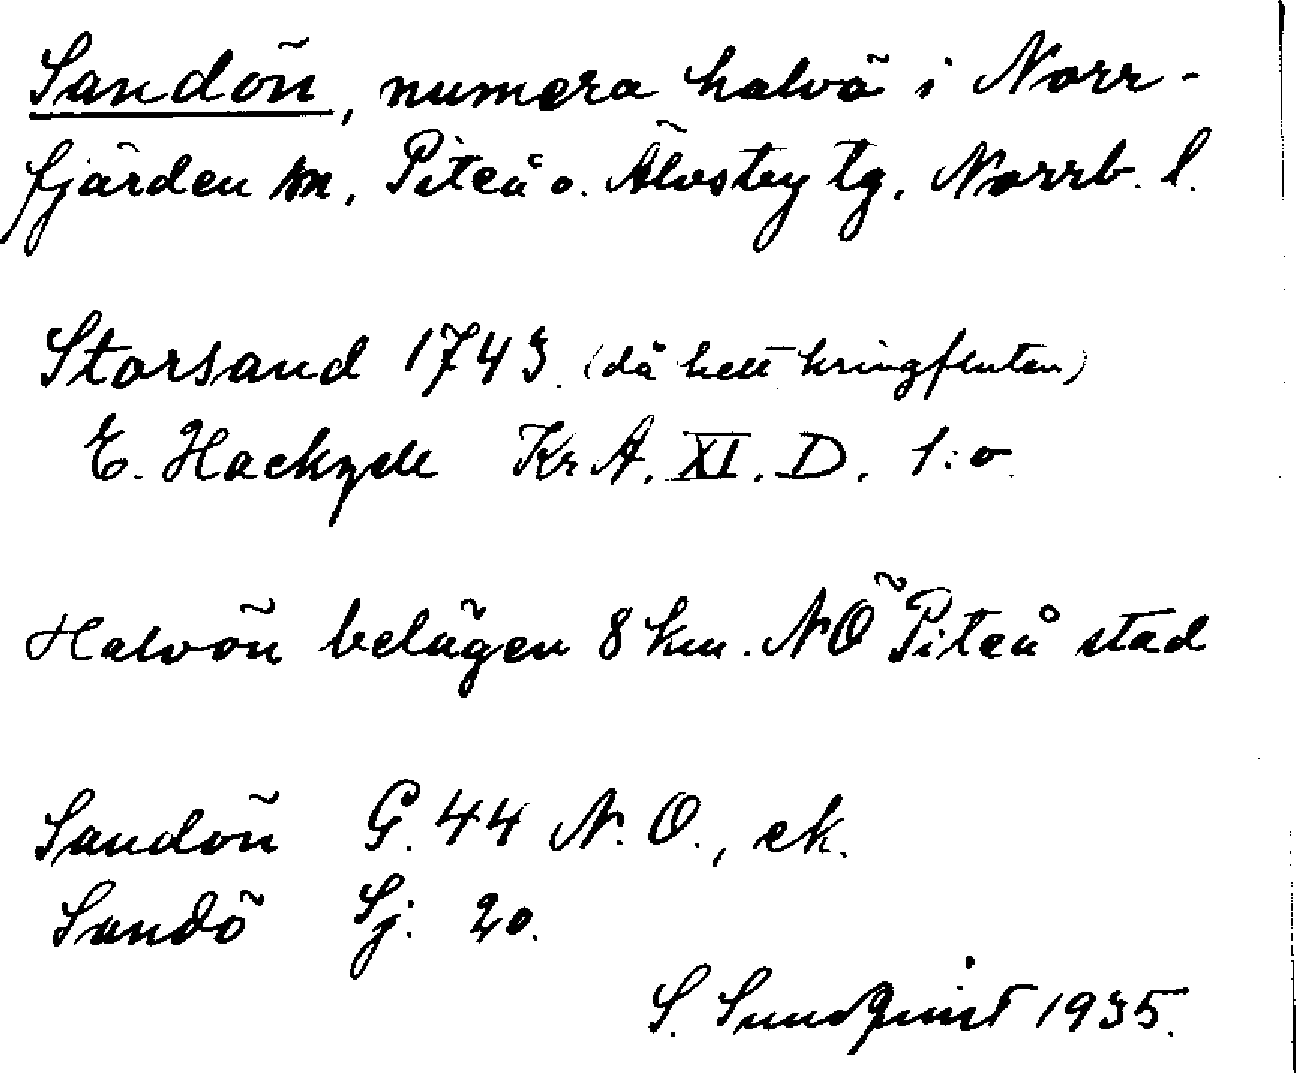 Sandön, numera halvö i Norr-
fjärden sn, Piteå o. Älvsby tg. Norrb. l.
Storsand 1743 (då helt kringfluten)
E. Hackzell Kr A. XI. D. 1:o
Halvön belägen 8 km. NÖ Piteå stad
Sandön G. 44 N.O., ek.
Sandö Sj. 20.
S. Sundquist 1935.